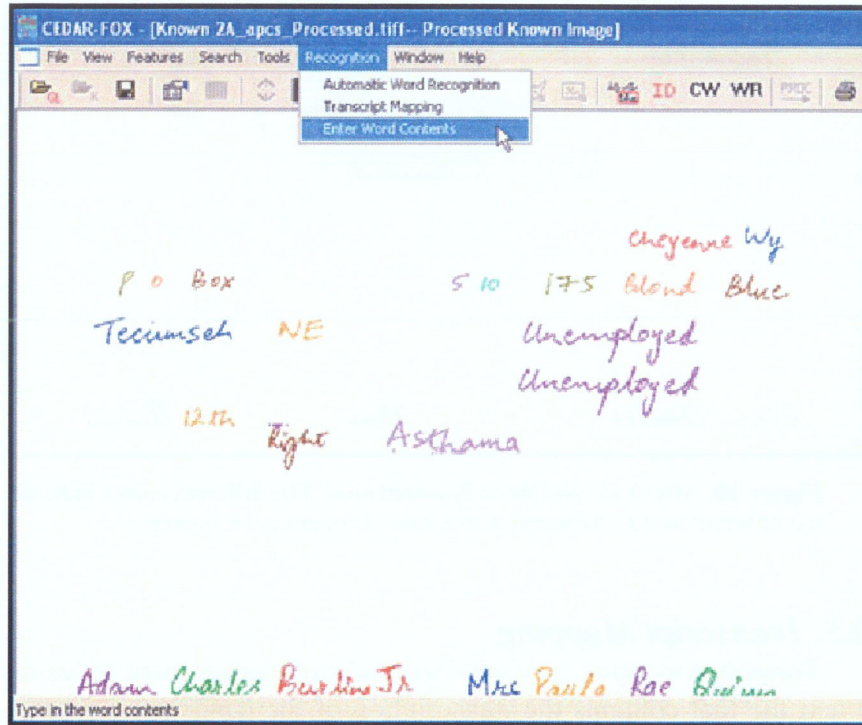 CEDAR-FOX - [Known 2A_apcs_Processed.tiff-- Processed Known Image]
File View Features Search Tools Recognition Window Help
Automatic Word Recognition
ID CW WR
Transcript Mapping
Enter Word Contents
Cheyenne Wy
P O Box 5 10 175 Blond Blue
Tecumseh NE Unemployed
Unemployed
12th Right Asthama
Adam Charles Jr Mrs Paula Rae Quinn
Type in the word contents